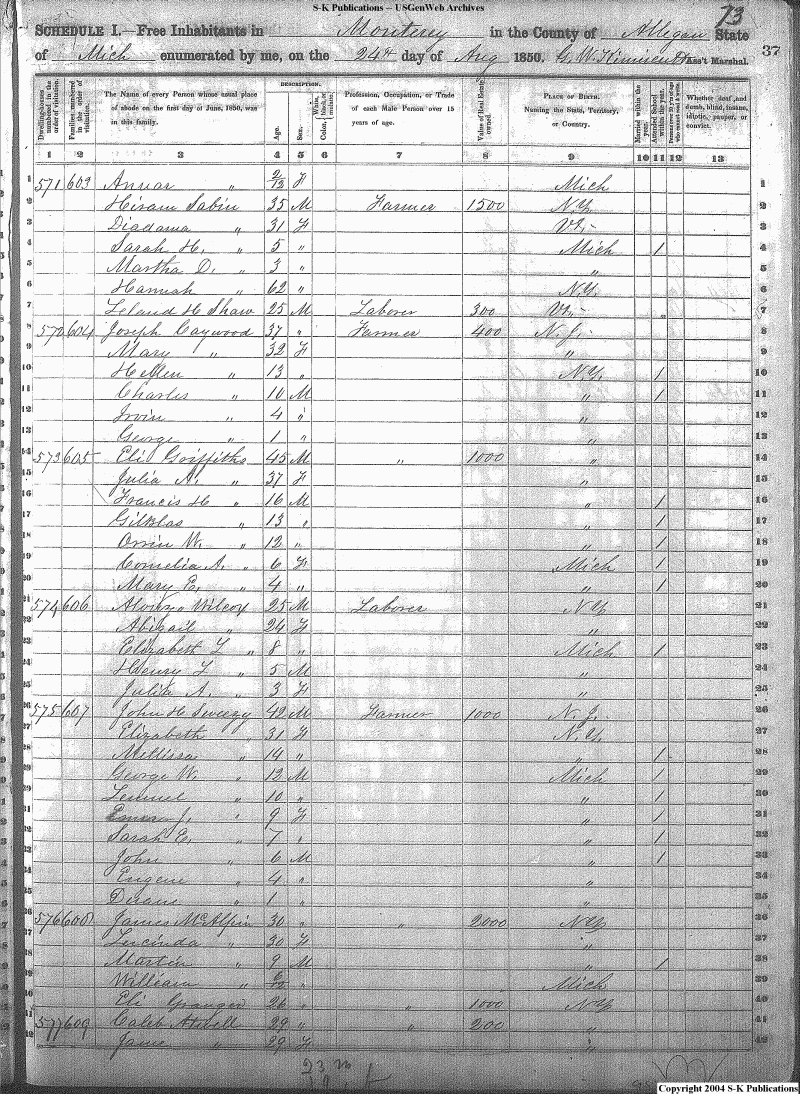 S-K Publications – USGenWeb Archives
73
SCHEDULE I.—Free Inhabitants in Monterey in the County of Allegan State 37
of Mich enumerated by me, on the 24th day of Aug 1850. G. W. Ass't Marshal.
DESCRIPTION.
Dwelling-houses numbered in the order of visitation. Families numbered in the order of visitation. The Name of every Person whose usual place of abode on the first day of June, 1850, was in this family. Age. Sex. Color White, black, or mulatto. Profession, Occupation, or Trade of each Male Person over 15 years of age. Value of Real Estate owned. PLACE OF BIRTH. Naming the State, Territory, or Country. Married within the year. Attended School within the year. Persons over 20 y'rs of age who cannot read & write. Whether deaf and dumb, blind, insane, idiotic, pauper, or convict.
1 2 3 4 5 6 7 8 9 10 11 12 13
1 571 603 Annar " 2/12 F Mich 1
2 Hiram Sabin 35 M Farmer 1500 N.Y. 2
3 Diadama " 31 F Vt. 3
4 Sarah H. " 5 " Mich 1 4
5 Martha D. " 3 " " 5
6 Hannah " 62 " N.Y. 6
7 Leland H Shaw 25 M Laborer 300 Vt. 7
8 570 604 Joseph Caywood 37 " Farmer 400 N.J. 8
9 Mary " 32 F " 9
10 Hellen " 13 " N.Y. 1 10
11 Charles " 10 M " 1 11
12 Irvin " 4 " " 12
13 George " 1 " " 13
14 573 605 Eli Griffiths 45 M " 1000 " 14
15 Julia A. " 37 F " 15
16 Francis H " 16 M " 1 16
17 Gilklas " 13 " " 1 17
18 Orrin W. " 12 " " 1 18
19 Cornelia A. " 6 F Mich 1 19
20 Mary E. " 4 " " 1 20
21 574 606 Alonzo Wilcox 25 M Laborer N.Y 21
22 Abigail " 24 F " 22
23 Elizabeth L " 8 " Mich 1 23
24 Henry L " 5 M " 24
25 Julia A. " 3 F " 25
26 575 607 John H Swezy 42 M Farmer 1000 N.J. 26
27 Elizabeth " 31 F N.Y. 27
28 Millissa " 14 " " 1 28
29 George W. " 12 M Mich 1 29
30 Lemuel " 10 " " 1 30
31 J. " 9 F " 1 31
32 Sarah E. " 7 " " 1 32
33 John " 6 M " 1 33
34 Eugene " 4 " " 34
35 Duane " 1 " " 35
36 576 608 James McAlpin 30 " " 2000 N.Y 36
37 Lucinda " 30 F " 37
38 Martin " 9 M " 1 38
39 William " 6/12 " Mich 39
40 Eli Granger 26 " " 1000 N.Y 40
41 577 609 Caleb Atwell 29 " " 200 " 41
42 Jane " 29 F " 42
23
Copyright 2004 S-K Publications